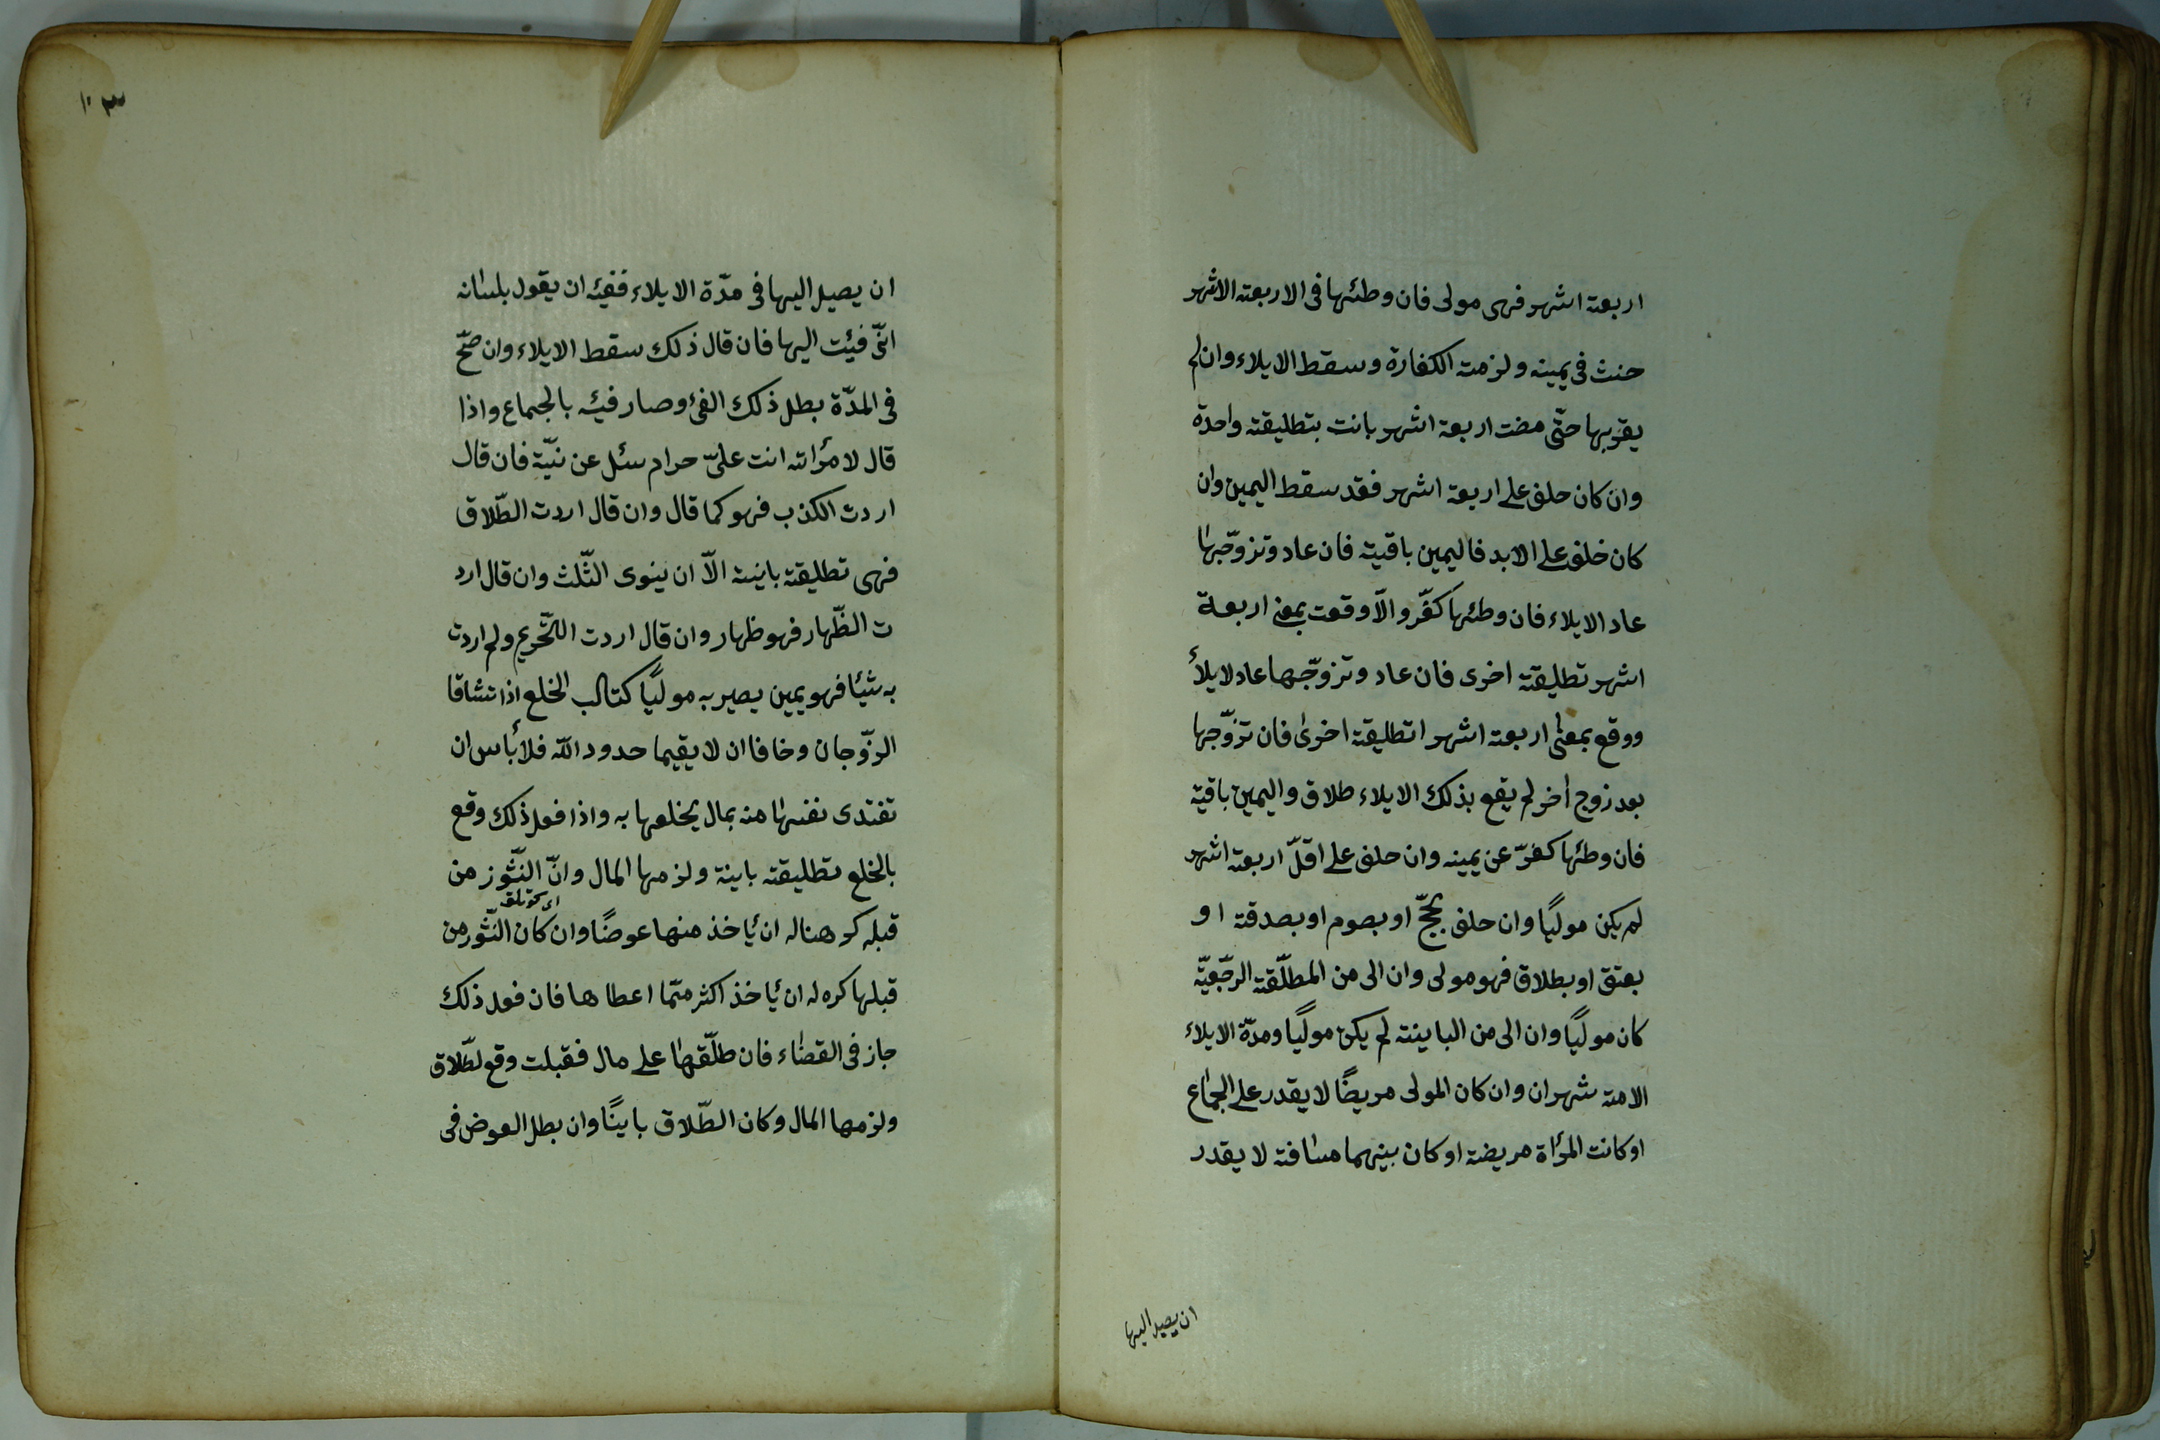 اربعة اشهر فهى مولى فان وطئها فى الاربعة الاشهر
حنث فى يمينه ولزمته الكفارة وسقط الايلاء وان لم
يقربها حتّى مضت اربعة اشهر بانت بتطليقة واحدة
وان كان حلف على اربعة اشهر فقد سقط اليمين وان
كان خلف على الابد فاليمين باقية فان عاد وتزوّجها
عاد الايلاء فان وطئها كفّر والّا وقعت بمضى اربعة
اشهر تطليقة اخرى فان عاد وتزوّجها عاد لايلأ
ووقع بمعنى اربعة اشهر اتطليقة اخرى فان تزوّجها
بعد زوج أخر لم يقع بذلك الايلاء طلاق واليمين باقية
فان وطئها كفرّ عن يمينه وان حلف على اقلّ اربعة اشهر
لم يكن موليًا وان حلف بحجّ او بصوم او بصدقة او
بعتق او بطلاق فهو مولى وان الى من المطلّقة الرجّعيّة
كان موليًا وان الى من الباينة لم يكن موليًا ومدّة الايلاء
الامة شهران وان كان المولى مريضًا لا يقدر على الجماع
او كانت المرأة مريضة او كان بينهما مسافة لا يقدر
ان يصيل اليها
١٠٣
ان يصيل اليها فى مدّة الايلاء ففيئه ان يقول بلسانه
انّى فيئت اليها فان قال ذلك سقط الايلاء وان صحّ
فى المدّة بطل ذلك الفئ وصار فيئه بالجماع واذا
قال لامرأته انت علىّ حرام سئل عن نيّة فان قال
اردت الكذب فهو كما قال وان قال اردت الطّلاق
فهى تطليقة باينة الّا ان ينوى الثّلث وان قال ارد
ت الظّهار فهو ظهار وان قال اردت التّحريم ولم اردت
به شيئا فهو يمين يصير به موليًا كتاب الخلع اذا تشاقا
الزّوجان وخافا ان لا يقيما حدود اللّه فلا بأس ان
تفتدى نفسها منه بمال يخلعها به واذا فعل ذلك وقع
بالخلع تطليقة باينة ولزمها المال وانّ النّشوز من
قبله كر هناله ان يأخذ منها عوضًا وان كان النّشور من
قبلها كره له ان يأخذ اكثر ممّا اعطاها فان فعل ذلك
جاز فى القضاء فان طلّقها على مال فقبلت وقع لطّلاق
ولزمها المال وكان الطّلاق باينًا وان بطل العوض فى